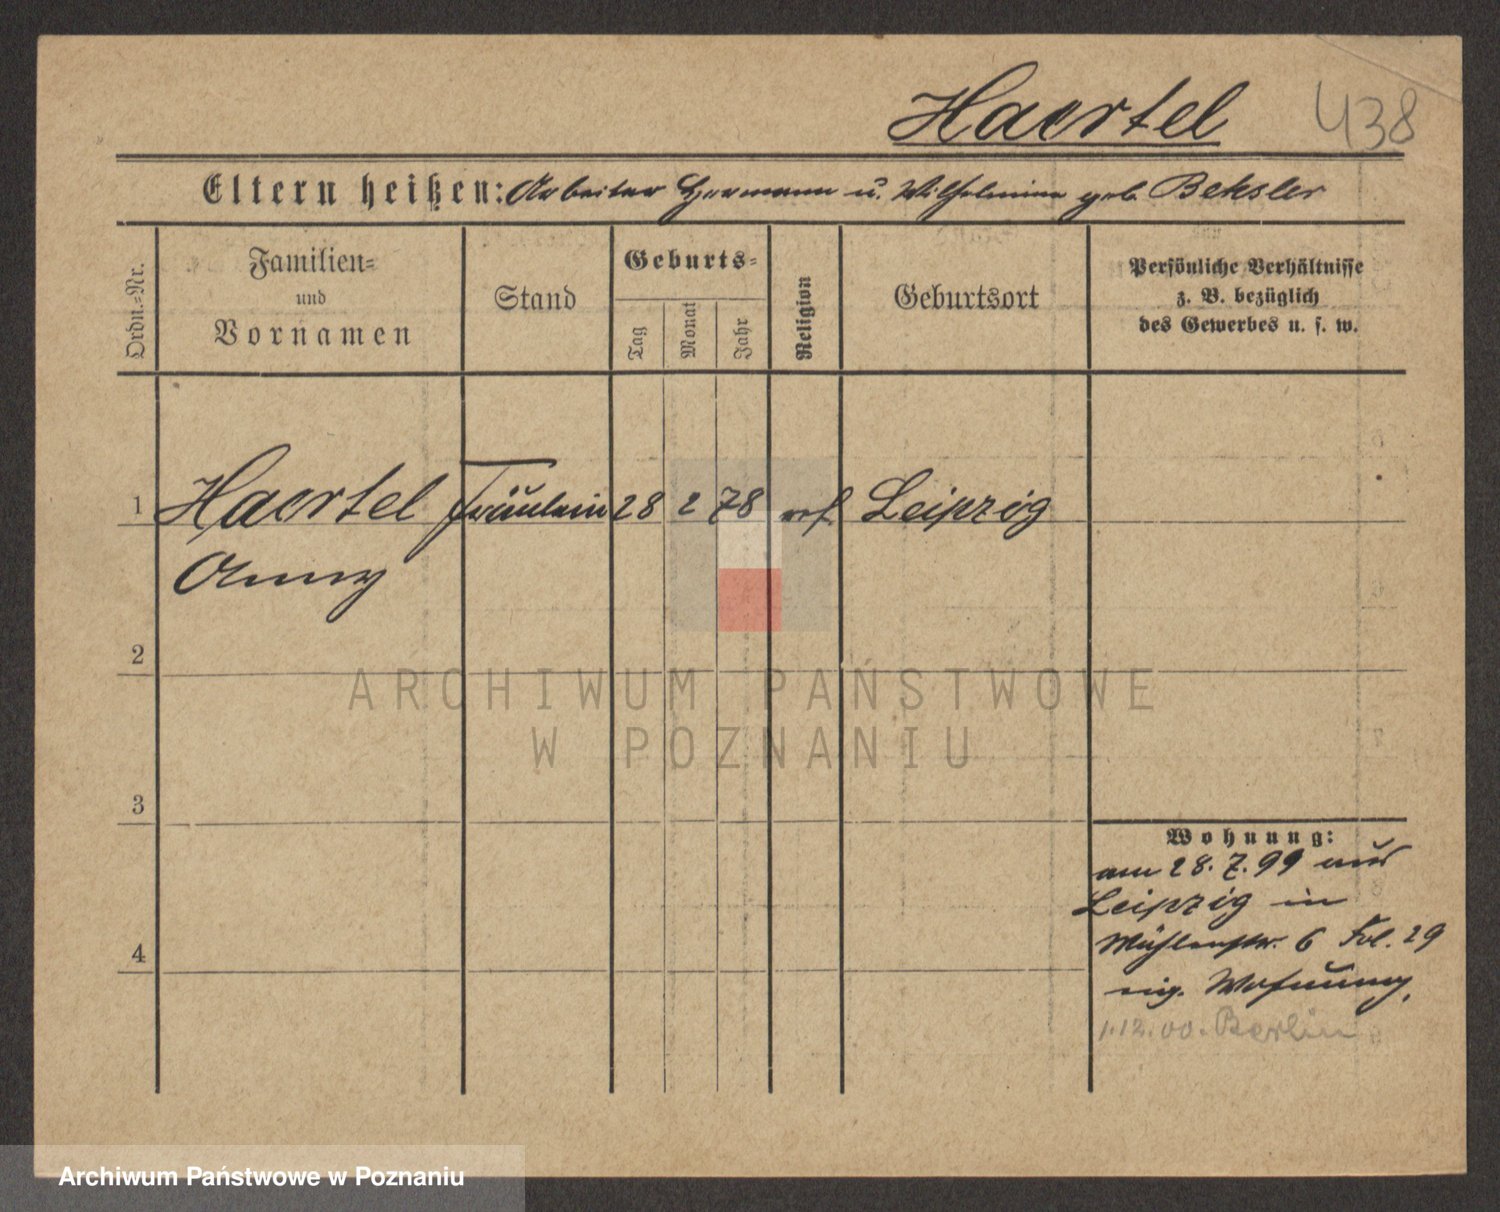 Haertel 438
Eltern heißen: Arbeiter Hermann u. Wilhelmine geb. Beksler
Ordn.-Nr.
Familien-
und
Vornamen
Stand
Geburts-
Tag
Monat
Jahr
Religion
Geburtsort
Persönliche Verhältnisse
z. B. bezüglich
des Gewerbes u. s. w.
1 Haertel Fräulein 28 2 78 ref Leipzig
Anny
2
ARCHIWUM PAŃSTWOWE
W POZNANIU
3
Wohnung:
am 28.7.99 aus
Leipzig in
Mühlenstr. 6 Fol. 29
eig. Wohnung.
4
1.12.00. Berlin
Archiwum Państwowe w Poznaniu